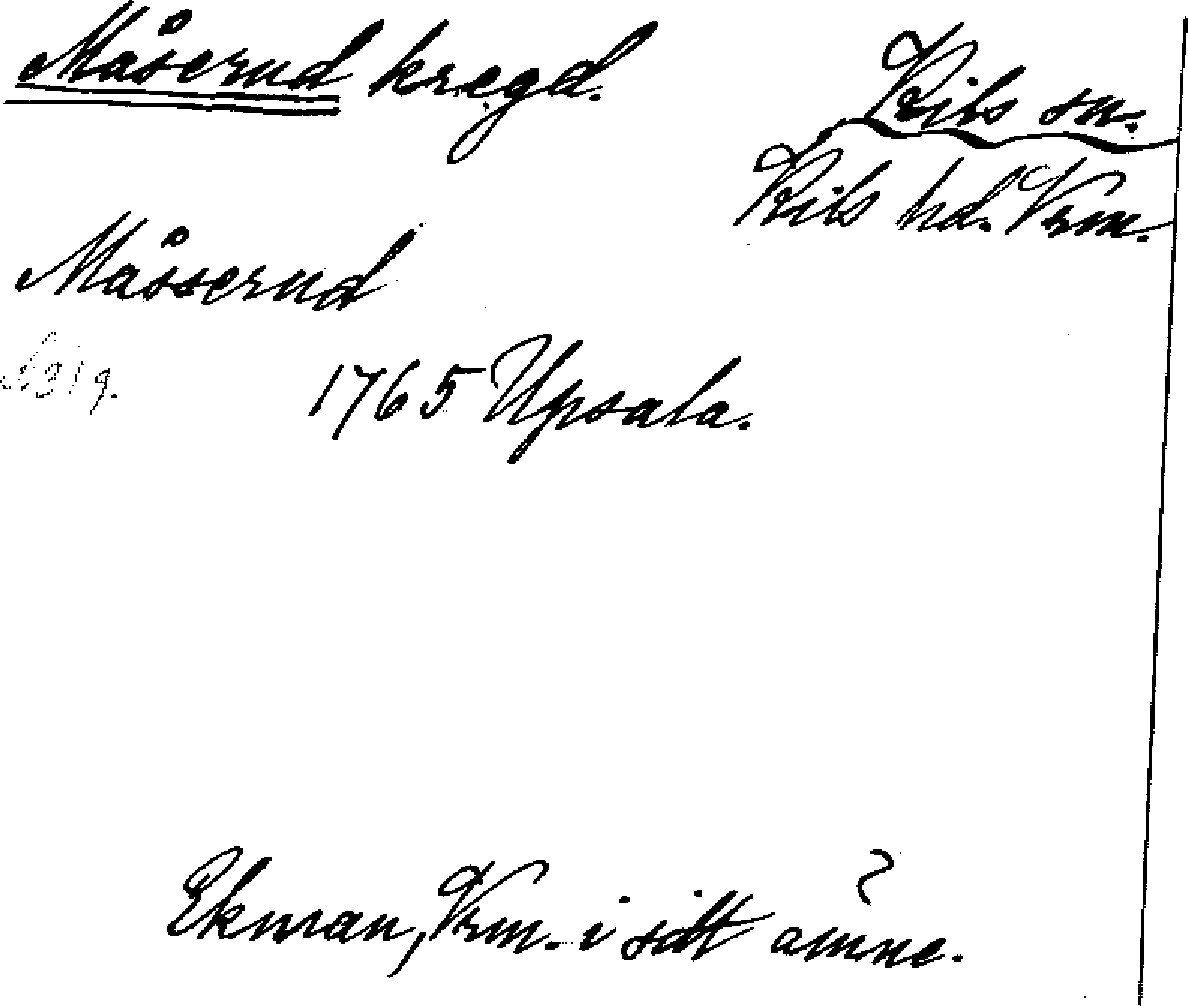 Måserud kregd.
Kils sn.
Kils hd. Vrm.
Måsserud
1765 Upsala.
Ekman, Vrm. i sitt ämne.